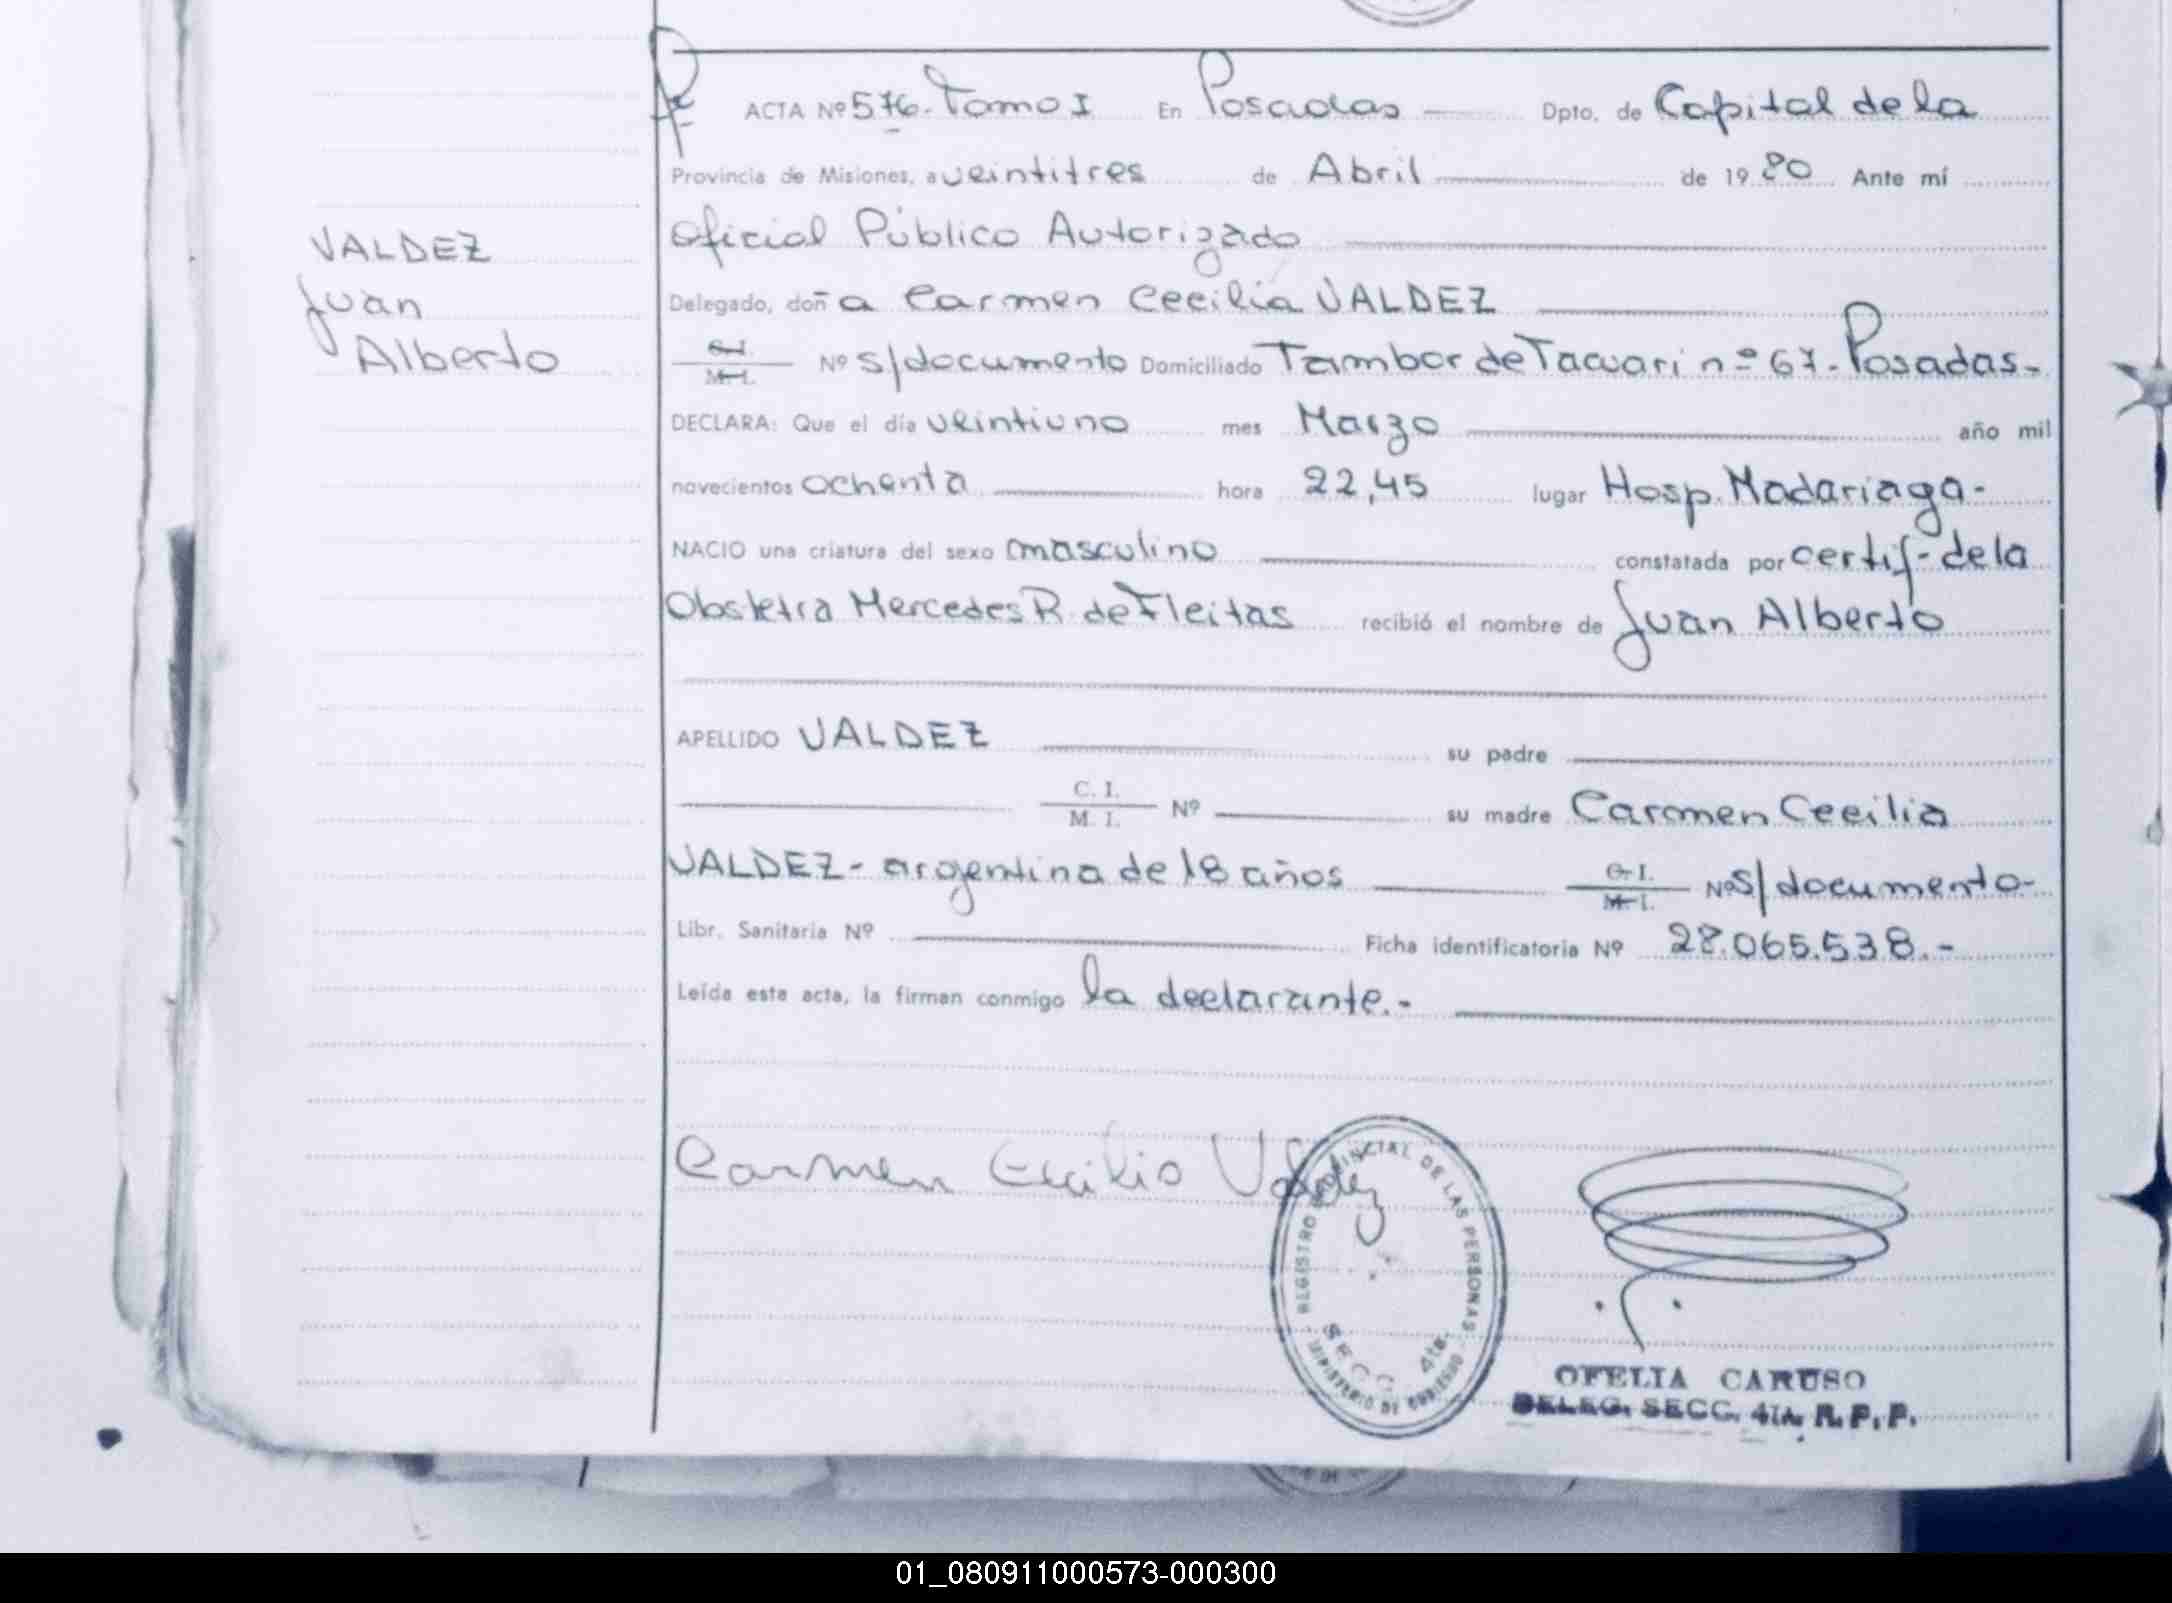 ACTA Nº 576. Tomo I En Posadas Dpto. de Capital de la
Provincia de Misiones, a veintitres de Abril de 1980 Ante mí
VALDEZ
Juan
Alberto
Oficial Público Autorizado
Delegado, doña Carmen Cecilia VALDEZ
C.I.
M.I. Nº s/documento Domiciliado Tambor de Tacuari nº 67.- Posadas.-
DECLARA: Que el día veintiuno mes Marzo año mil
novecientos ochenta hora 22,45 lugar Hosp. Madariaga-
NACIO una criatura del sexo masculino constatada por certif- de la
Obstetra Mercedes R. de Fleitas recibió el nombre de Juan Alberto
APELLIDO VALDEZ su padre
C. I.
M. I. Nº su madre Carmen Cecilia
VALDEZ- argentina de 18 años C.I.
M.I. Nº s/documento-
Libr. Sanitaria Nº Ficha identificatoria Nº 28.065.538.-
Leída esta acta, la firman conmigo la declarante.-
Carmen Cecilia Valdez
REGISTRO PROVINCIAL DE LAS PERSONAS
SECC. 4ta.
MINISTERIO DE GOBIERNO
OFELIA CARUSO
DELEG. SECC. 4TA. R. P. P.
01_080911000573-000300